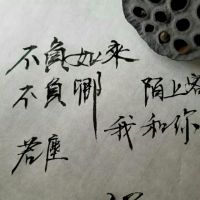 不負如来
不負卿
若座
陌上客
我和你